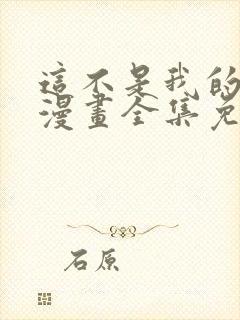 這不是我的
漫畫全集免
石原